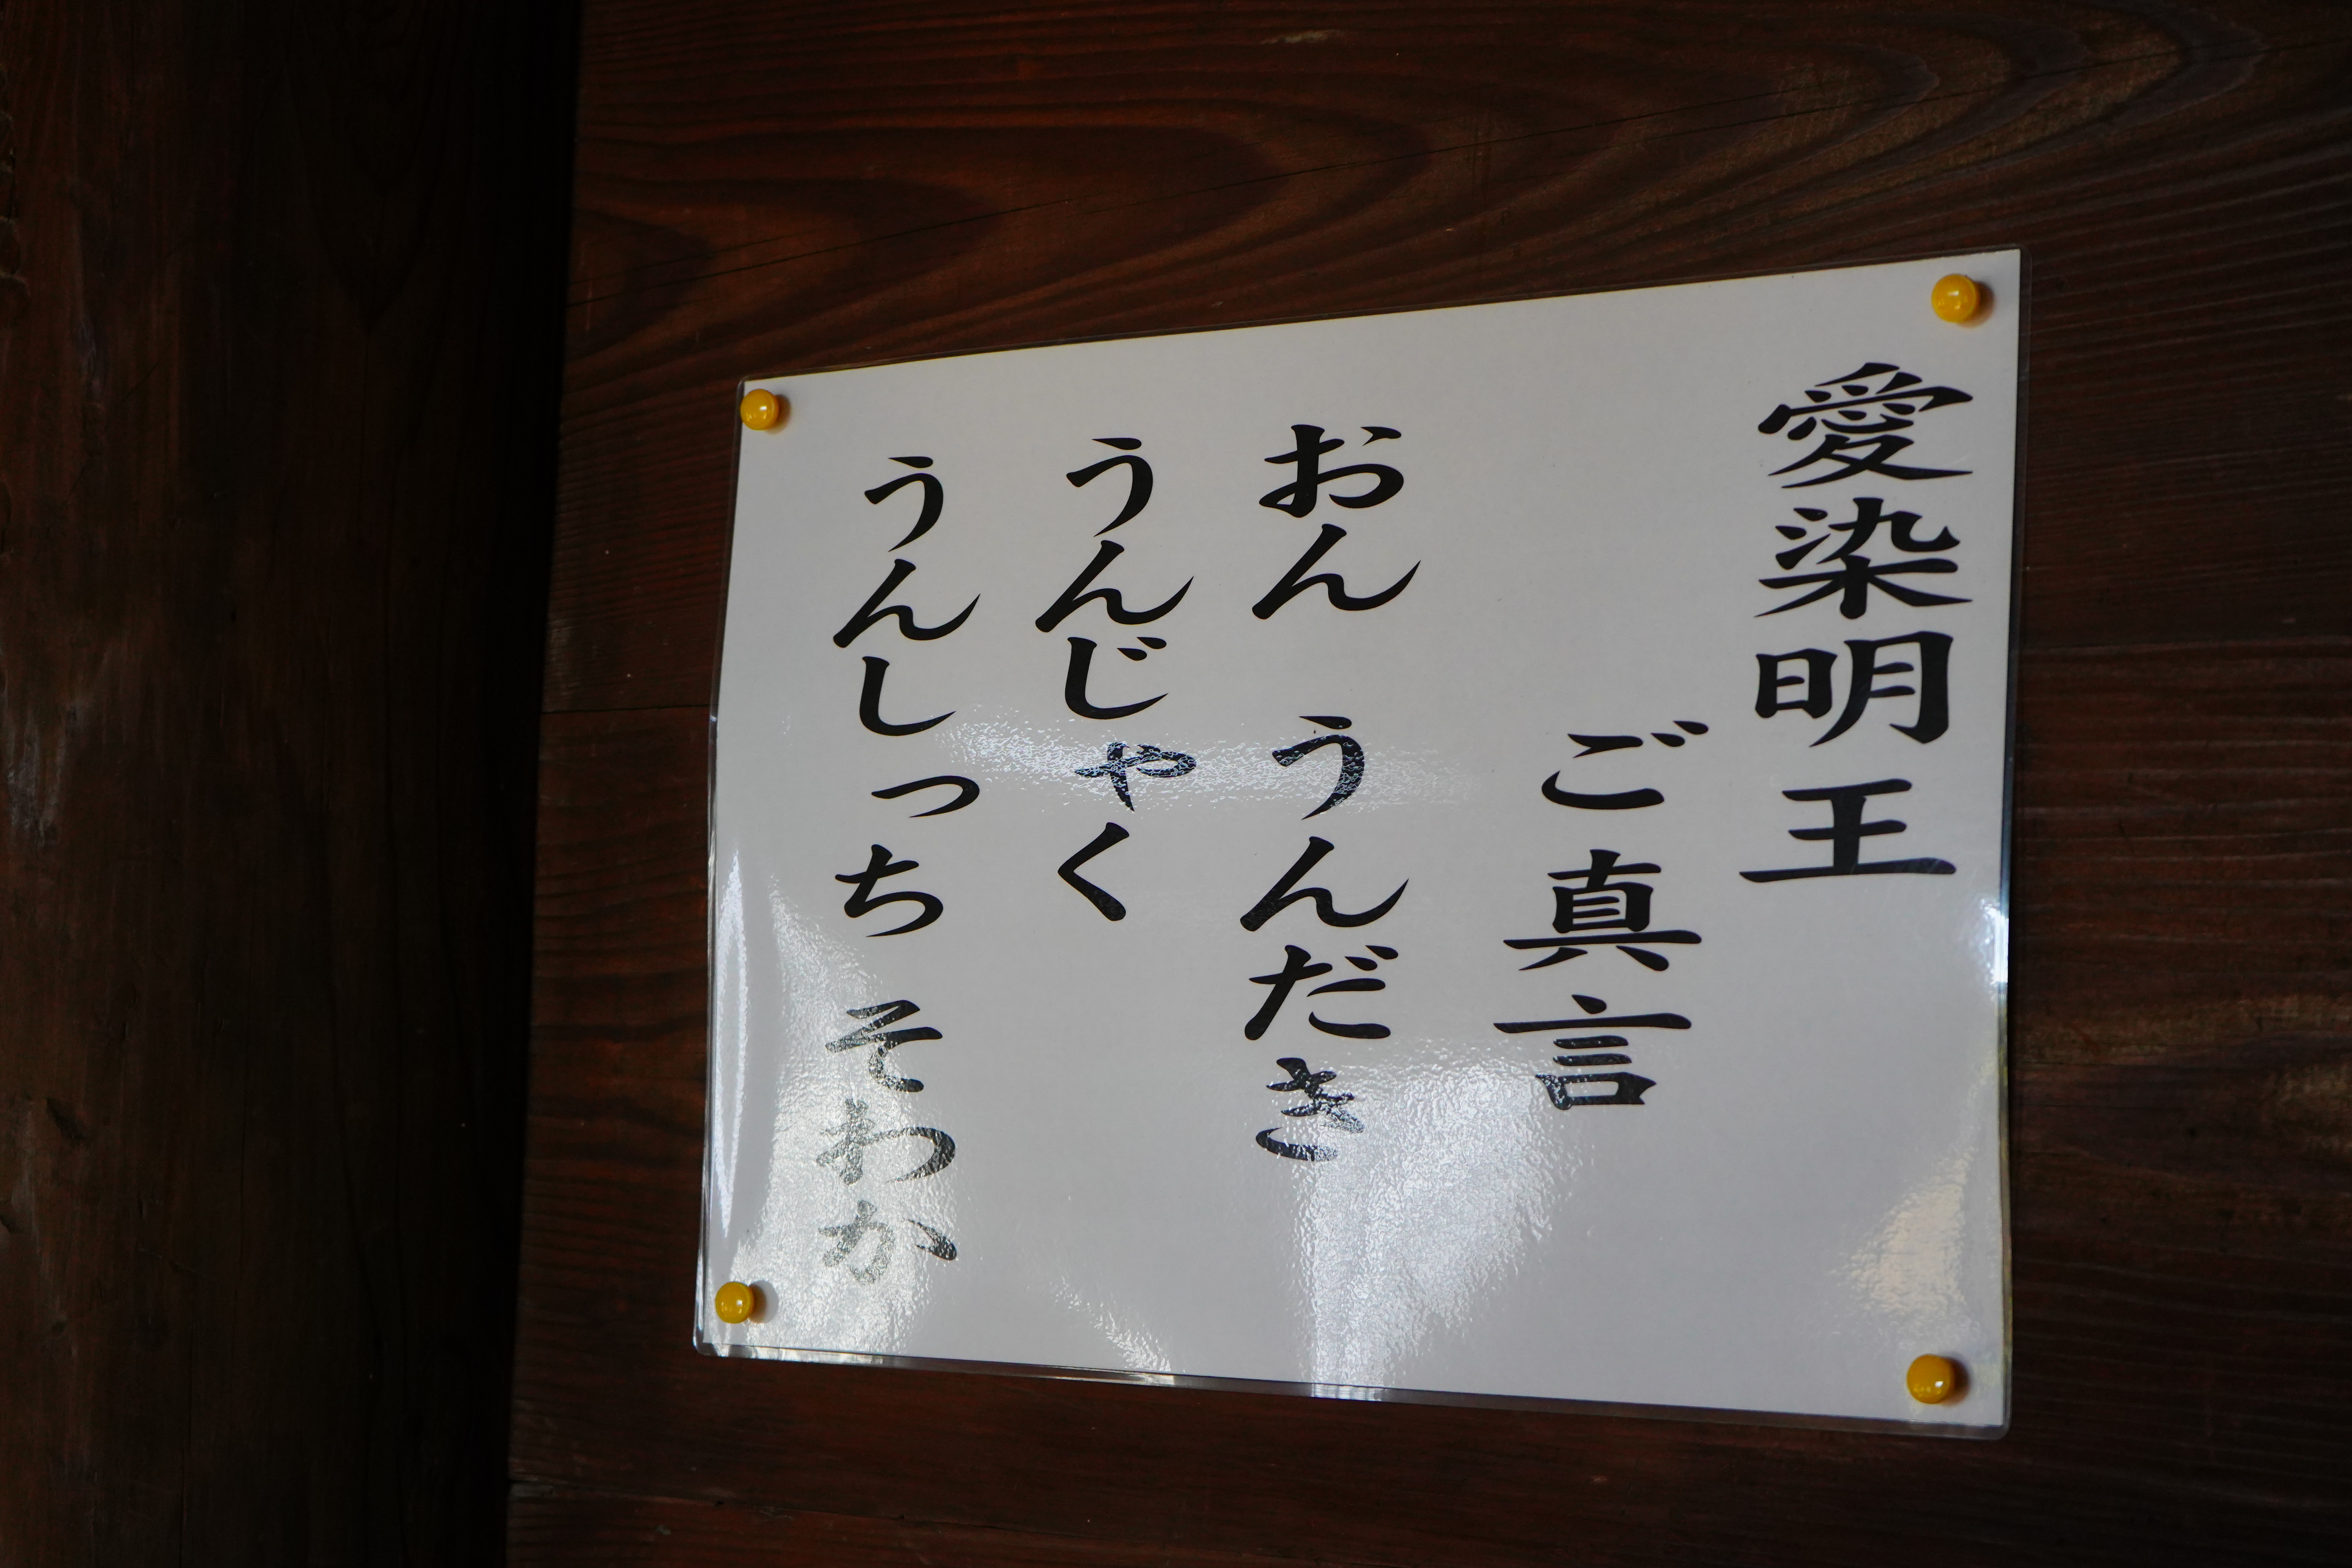 愛染明王
ご真言
おん　うんだき
うんじゃく
うんしっち　そわか